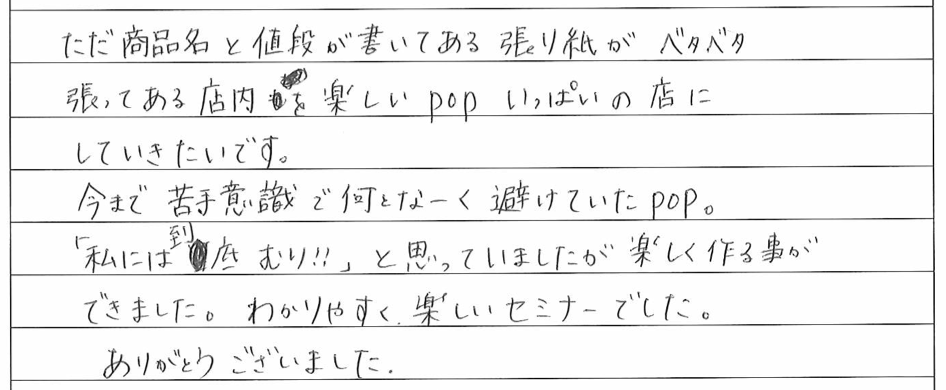 ただ商品名と値段が書いてある張り紙がベタベタ
張ってある店内を楽しいpopいっぱいの店に
していきたいです。
今まで苦手意識で何となーく避けていたpop。
「私には到底むり!!」と思っていましたが楽しく作る事が
できました。わかりやすく、楽しいセミナーでした。
ありがとうございました.